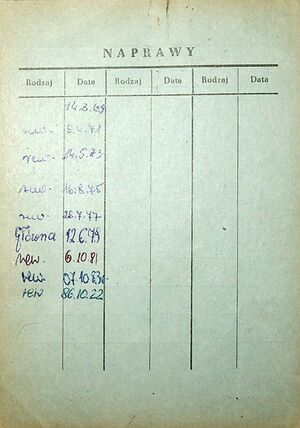 NAPRAWY
Rodzaj Data Rodzaj Data Rodzaj Data
14.3.69
rew. 8.4.71
rew. 14.5.73
rew. 16.8.75
rew. 28.7.77
główna 12.6.79
rew. 6.10.81
rew. 07.10.83
rew 86.10.22